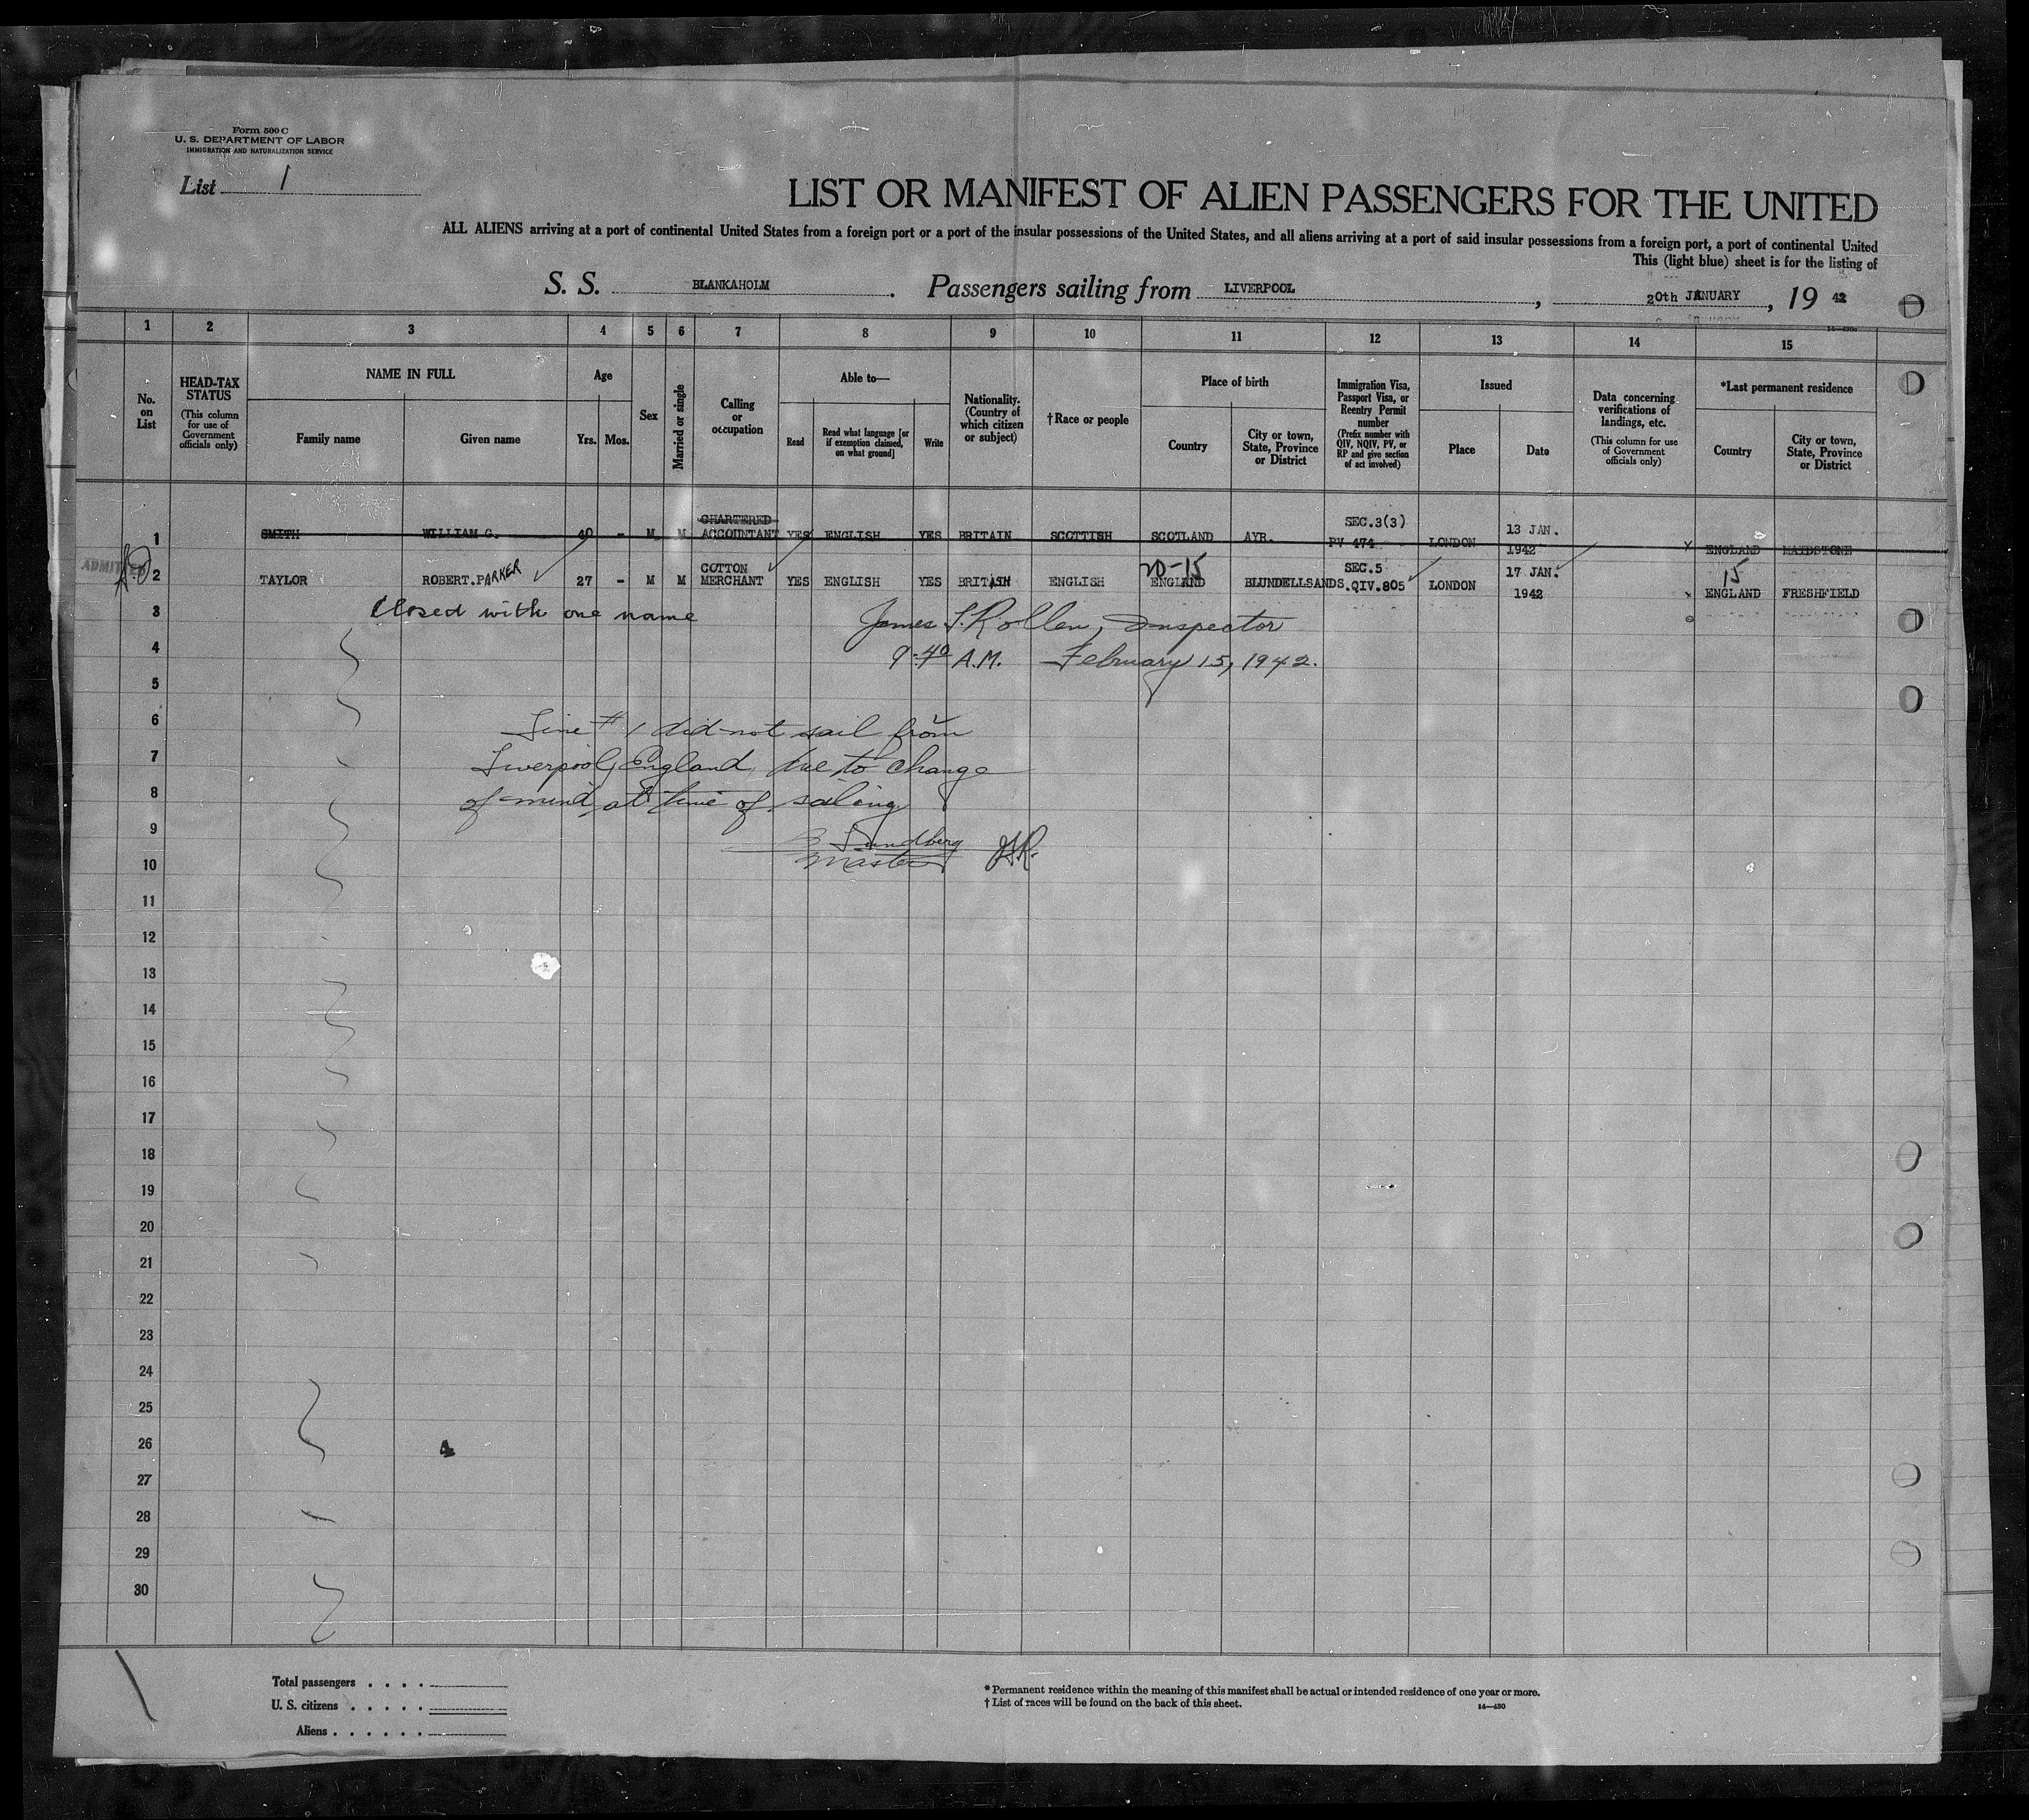 Form 500 C
U. S. DEPARTMENT OF LABOR
IMMIGRATION AND NATURALIZATION SERVICE
List 1
LIST OR MANIFEST OF ALIEN PASSENGERS FOR THE UNITED
ALL ALIENS arriving at a port of continental United States from a foreign port or a port of the insular possessions of the United States, and all aliens arriving at a port of said insular possessions from a foreign port, a port of continental United
This (light blue) sheet is for the listing of
S. S. BLANKAHOLM. Passengers sailing from LIVERPOOL, 20th JANUARY, 19 42
1 2 3 4 5 6 7 8 9 10 11 12 13 14 15
No. on List
HEAD-TAX STATUS (This column for use of Government officials only)
NAME IN FULL
Family name
Given name
Age
Yrs. Mos.
Sex
Married or single
Calling or occupation
Able to—
Read
Read what language [or if exemption claimed, on what ground]
Write
Nationality. (Country of which citizen or subject)
† Race or people
Place of birth
Country
City or town, State, Province or District
Immigration Visa, Passport Visa, or Reentry Permit number (Prefix number with QIV, NQIV, PV, or RP and give section of act involved)
Issued
Place
Date
Data concerning verifications of landings, etc. (This column for use of Government officials only)
*Last permanent residence
Country
City or town, State, Province or District
1 SMITH WILLIAM G. 40 - M M CHARTERED ACCOUNTANT YES ENGLISH YES BRITAIN SCOTTISH SCOTLAND AYR. SEC.3(3) PV 474 LONDON 13 JAN. 1942 ENGLAND MAIDSTONE
ADMITTED
2 TAYLOR ROBERT.PARKER 27 - M M COTTON MERCHANT YES ENGLISH YES BRITISH ENGLISH 20-15 ENGLAND BLUNDELLSANDS. SEC.5 QIV.805 LONDON 17 JAN. 1942 15 ENGLAND FRESHFIELD
3 Closed with one name James S. Rollen, Inspector
4 9.40 A.M. February 15, 1942.
5
6 Line # 1 did not sail from
7 Liverpool, England, due to change
8 of mind, at time of sailing
9 Sundberg
10 Master
11
12
13
14
15
16
17
18
19
20
21
22
23
24
25
26
27
28
29
30
Total passengers
U. S. citizens
Aliens
* Permanent residence within the meaning of this manifest shall be actual or intended residence of one year or more.
† List of races will be found on the back of this sheet.
14—430